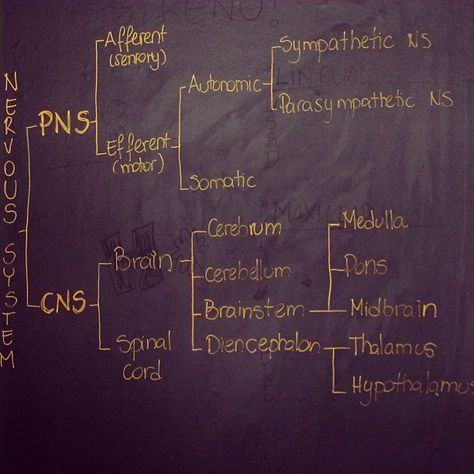 NERVOUS SYSTEM
PNS
Afferent
(sensory)
Efferent
(motor)
Autonomic
Sympathetic NS
Parasympathetic NS
Somatic
CNS
Brain
Cerebrum
Cerebellum
Brainstem
Medulla
Pons
Midbrain
Diencephalon
Thalamus
Hypothalamus
Spinal
Cord